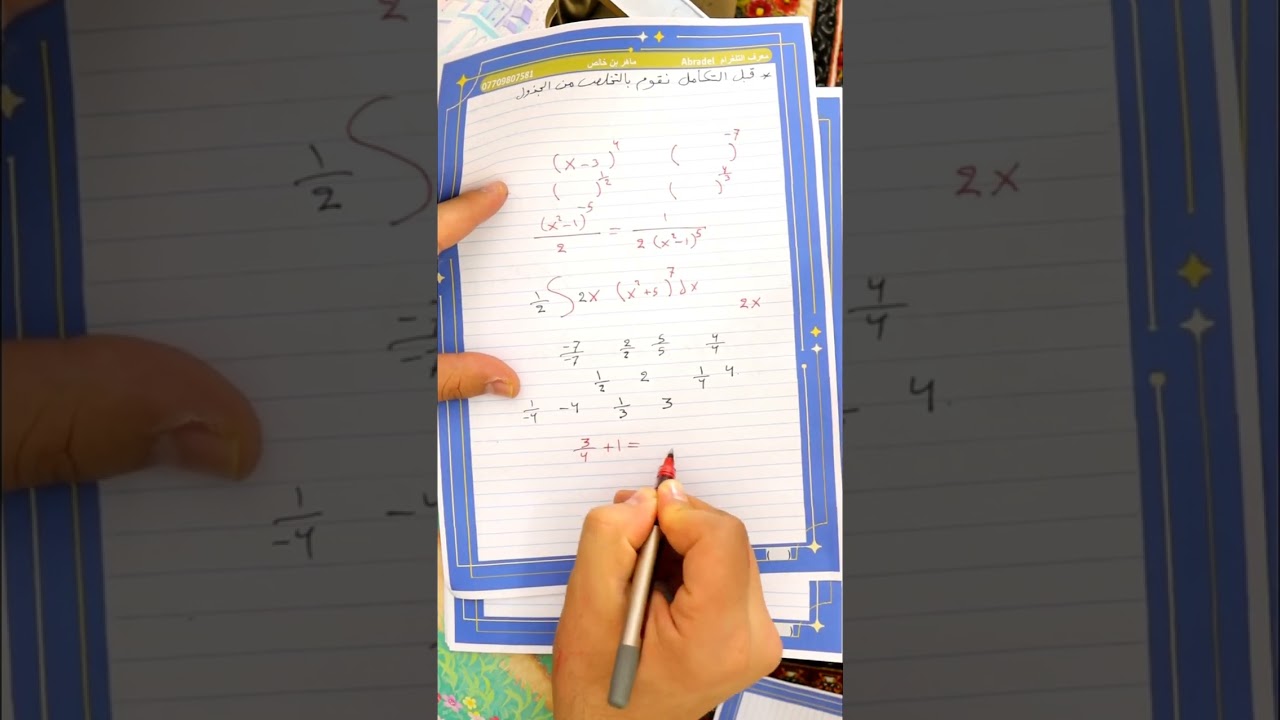 معرف التلغرام Abradel ماهر بن خالص 07709807581
* قبل التكامل نقوم بالتخلص من الجذول
(x-3)^4 ( )^-7
( )^1/2 ( )^4/3
(x²-1)^-5/2 = 1/2(x²-1)^5
1/2 ∫ 2x (x²+5)^7 dx
2x
-7/-7 2/2 5/5 4/4
1/2 2 1/4 4
1/-4 -4 1/3 3
3/4 +1 =